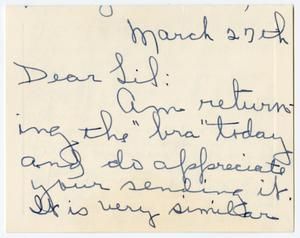 March 27th
Dear Sil:
Am return-
ing the "bra" today
and do appreciate
your sending it.
It is very similar